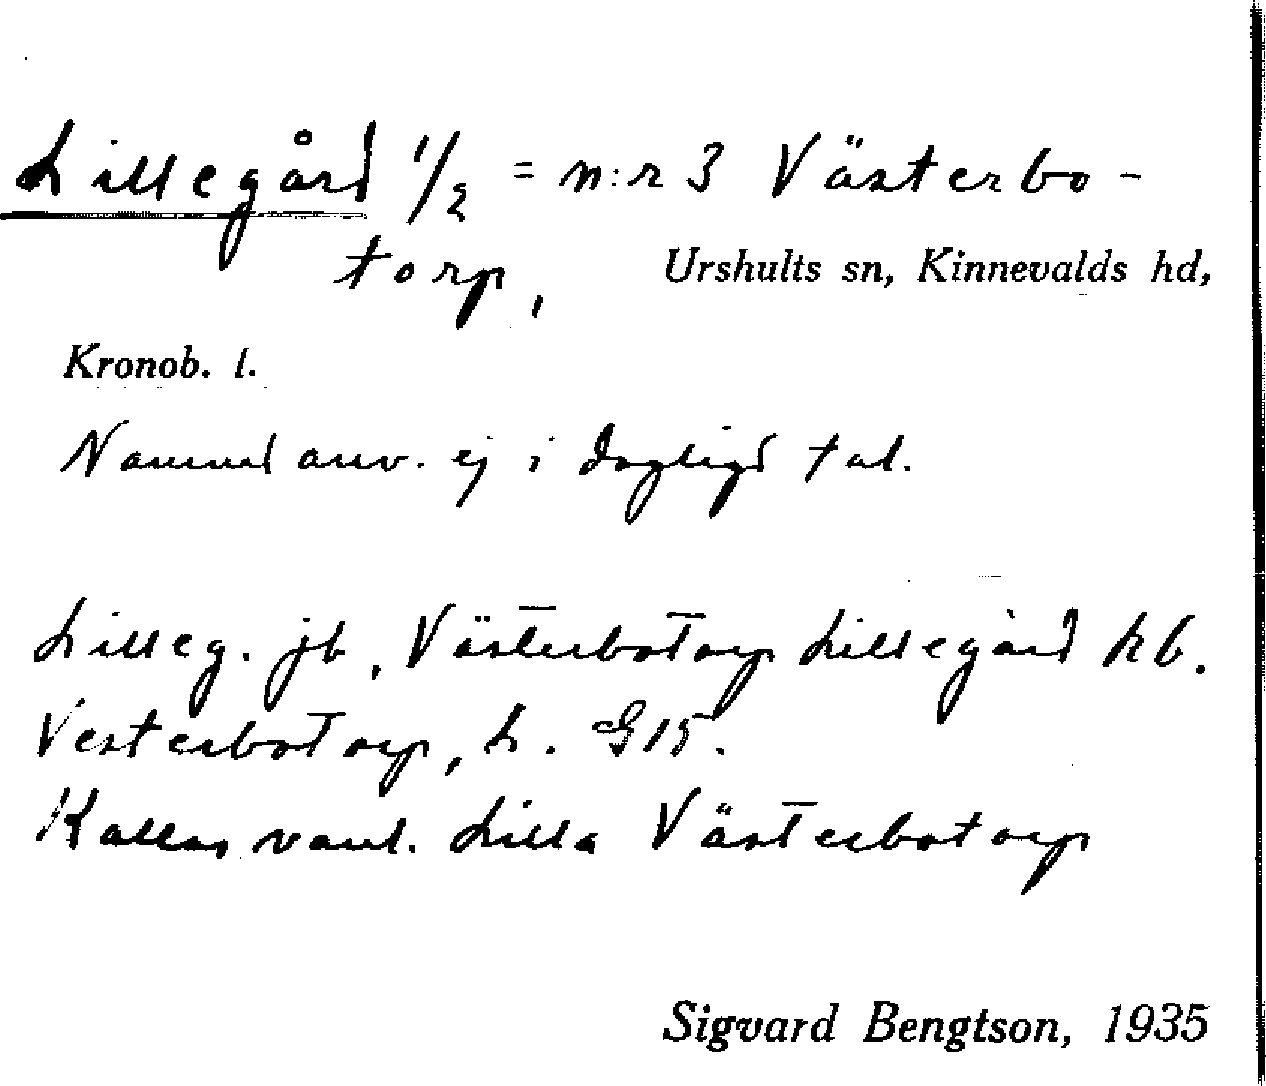 Lillegård 1/2 = n:r 3 Västerbo-
torp, Urshults sn, Kinnevalds hd,
Kronob. l.
Namnet anv. ej i dagligt tal.
Lilleg. jb, Västerbotorp Lillegård kb.
Vesterbotorp, L. G15.
Kallas vanl. Lilla Västerbotorp
Sigvard Bengtson, 1935